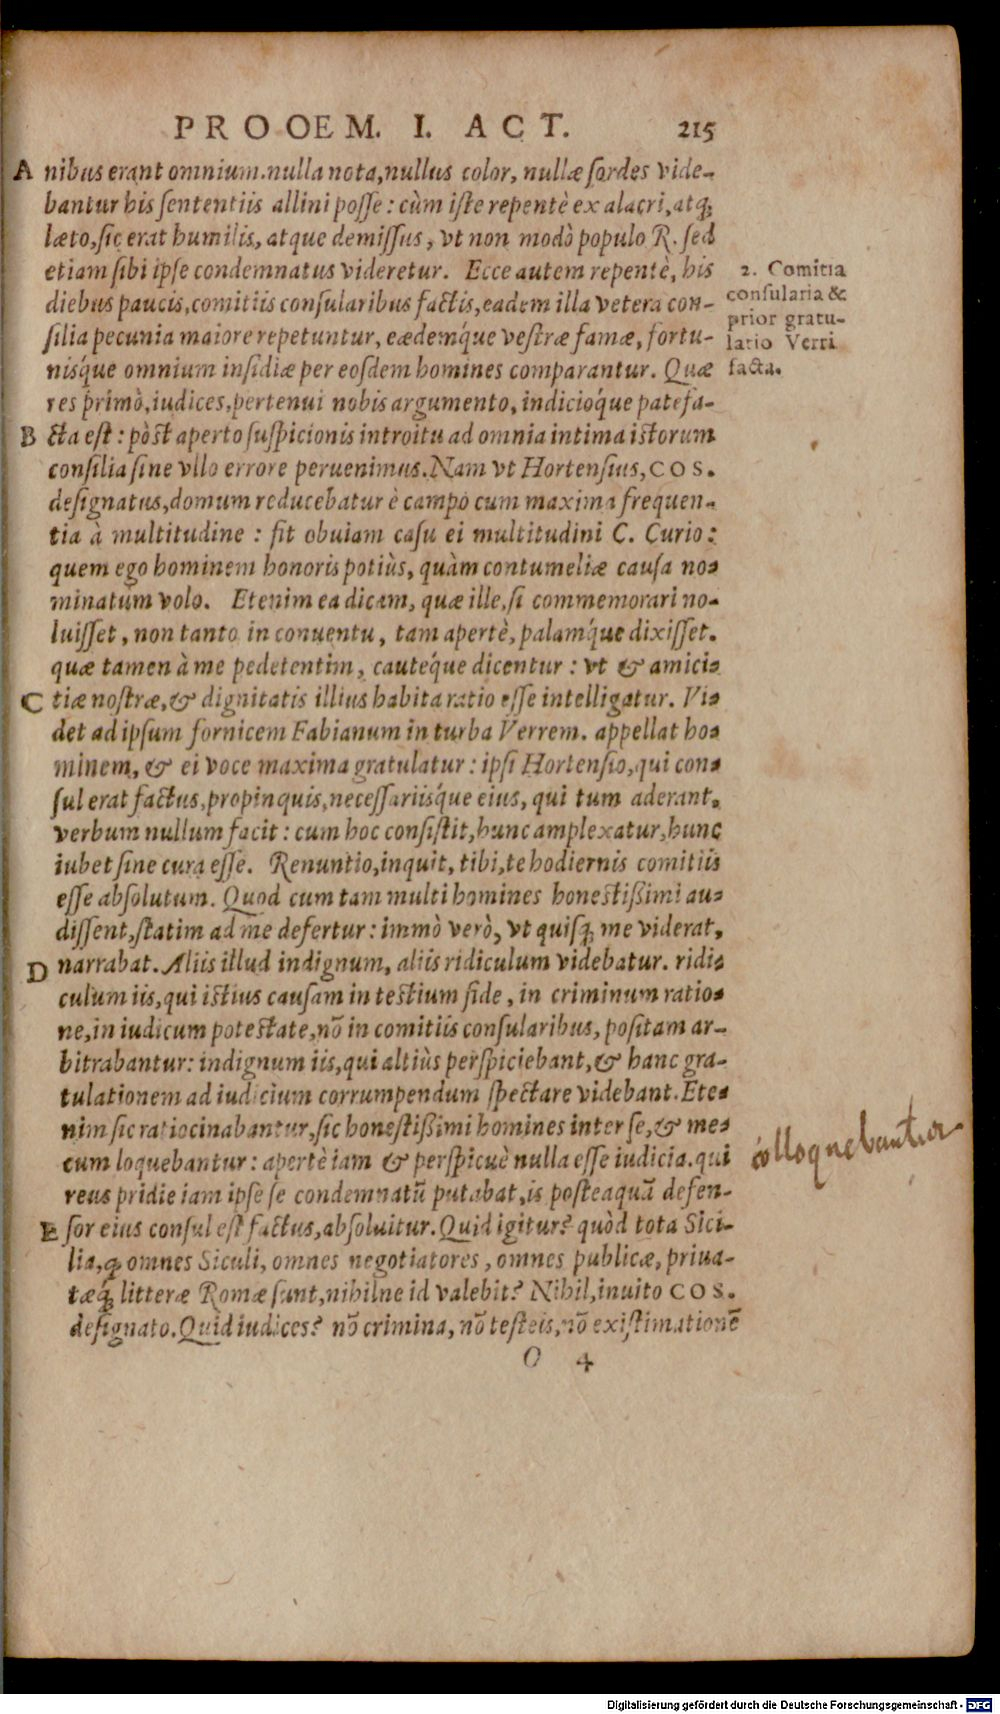 PROOEM. I. ACT. 215
A nibus erant omnium. nulla nota, nullus color, nullæ sordes vide-
bantur his sententiis allini posse: cùm iste repentè ex alacri, atq;
læto, sic erat humilis, atque demissus, vt non modò populo R. sed
etiam sibi ipse condemnatus videretur. Ecce autem repentè, his
diebus paucis, comitiis consularibus factis, eadem illa vetera con-
silia pecunia maiore repetuntur, eædemq́ue vestræ famæ, fortu-
nisq́ue omnium insidiæ per eosdem homines comparantur. Quæ
res primò, iudices, pertenui nobis argumento, indicioq́ue patefa-
B cta est: pòst aperto suspicionis introitu ad omnia intima istorum
consilia sine vllo errore peruenimus. Nam vt Hortensius, COS.
designatus, domum reducebatur è campo cum maxima frequen-
tia à multitudine: fit obuiam casu ei multitudini C. Curio:
quem ego hominem honoris potiùs, quàm contumeliæ causa no-
minatum volo. Etenim ea dicam, quæ ille, si commemorari no-
luisset, non tanto in conuentu, tam apertè, palamq́ue dixisset.
quæ tamen à me pedetentim, cauteq́ue dicentur: vt & amici-
C tiæ nostræ, & dignitatis illius habita ratio esse intelligatur. Vi-
det ad ipsum fornicem Fabianum in turba Verrem. appellat ho-
minem, & ei voce maxima gratulatur: ipsi Hortensio, qui con-
sul erat factus, propinquis, necessariisq́ue eius, qui tum aderant,
verbum nullum facit: cum hoc consistit, hunc amplexatur, hunc
iubet sine cura esse. Renuntio, inquit, tibi, te hodiernis comitiis
esse absolutum. Quod cum tam multi homines honestißimi au-
dissent, statim ad me defertur: immò verò, vt quisq; me viderat,
D narrabat. Aliis illud indignum, aliis ridiculum videbatur. ridi-
culum iis, qui istius causam in testium fide, in criminum ratio-
ne, in iudicum potestate, nō in comitiis consularibus, positam ar-
bitrabantur: indignum iis, qui altiùs perspiciebant, & hanc gra-
tulationem ad iudicium corrumpendum spectare videbant. Ete-
nim sic ratiocinabantur, sic honestißimi homines inter se, & me-
cum loquebantur: apertè iam & perspicuè nulla esse iudicia. qui
reus pridie iam ipse se condemnatū putabat, is posteaquā defen-
E sor eius consul est factus, absoluitur. Quid igitur? quòd tota Sici-
lia, q; omnes Siculi, omnes negotiatores, omnes publicæ, priua-
tæq; litteræ Romæ sunt, nihilne id valebit? Nihil, inuito COS.
designato. Quid iudices? nō crimina, nō testeis, nō existimationē
O 4
2. Comitia
consularia &
prior gratu-
latio Verri
facta.
colloquebantur